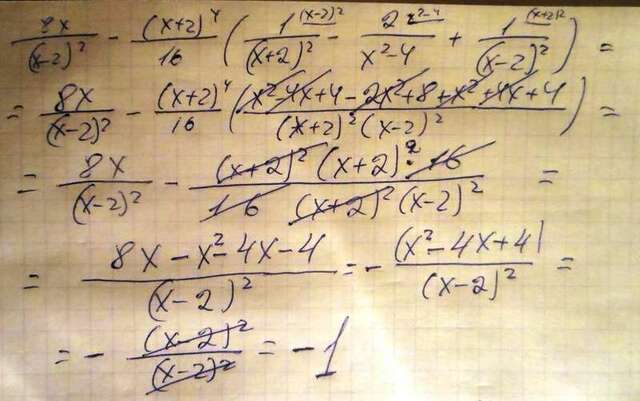 8x/(x-2)² - (x+2)⁴/16 (1^{(x-2)²}/(x+2)² - 2^{x²-4}/(x²-4) + 1^{(x+2)²}/(x-2)²) =
= 8x/(x-2)² - (x+2)⁴/16 ((x²-4x+4-2x²+8+x²+4x+4)/((x+2)²(x-2)²)) =
= 8x/(x-2)² - ((x+2)²(x+2)²·16)/(16 (x+2)²(x-2)²) =
= (8x-x²-4x-4)/(x-2)² = - (x²-4x+4)/(x-2)² =
= - (x-2)²/(x-2)² = -1